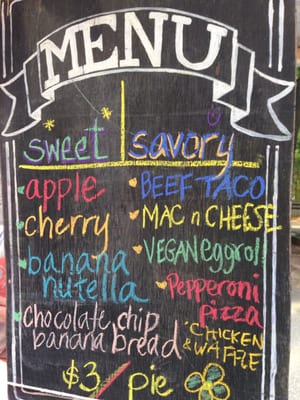 MENU
sweet
apple
cherry
banana
nutella
chocolate chip
banana bread
savory
BEEF TACO
MAC n CHEESE
VEGAN eggroll
Pepperoni
pizza
CHICKEN
& WAFFLE
$3/ pie